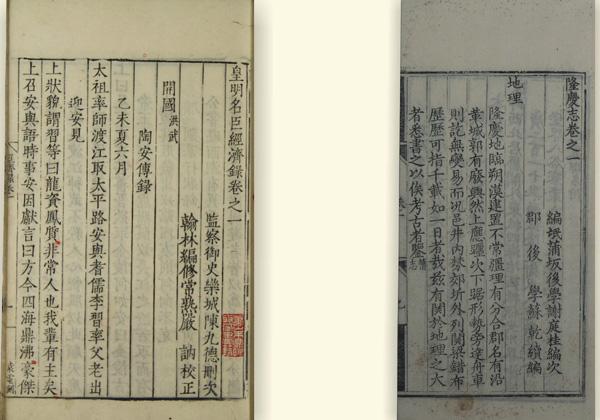 皇明名臣經濟錄卷之一
監察御史欒城陳九德刪次
翰林編修常熟嚴　訥校正
開國 洪武
陶安傳錄
乙未夏六月
太祖率師渡江取太平路安與耆儒李習率父老出
迎安見
上狀貌謂習等曰龍資鳳質非常人也我輩有主矣
上召安與語時事安因獻言曰方今四海鼎沸豪傑
隆慶志卷之一
編氓蒲坂後學謝庭桂編次
郡後學蘇乾續編
地理
隆慶地臨朔漠建置不常疆理有分合郡名有沿
革城郭有廢興然上應躔次下踞形勢旁達舟車
則訖無變易而況邑井內禁郊圻外列關梁錯布
歷歷可指千載如一日者哉茲有關於地理之大
者悉書之以俟考古者鑒